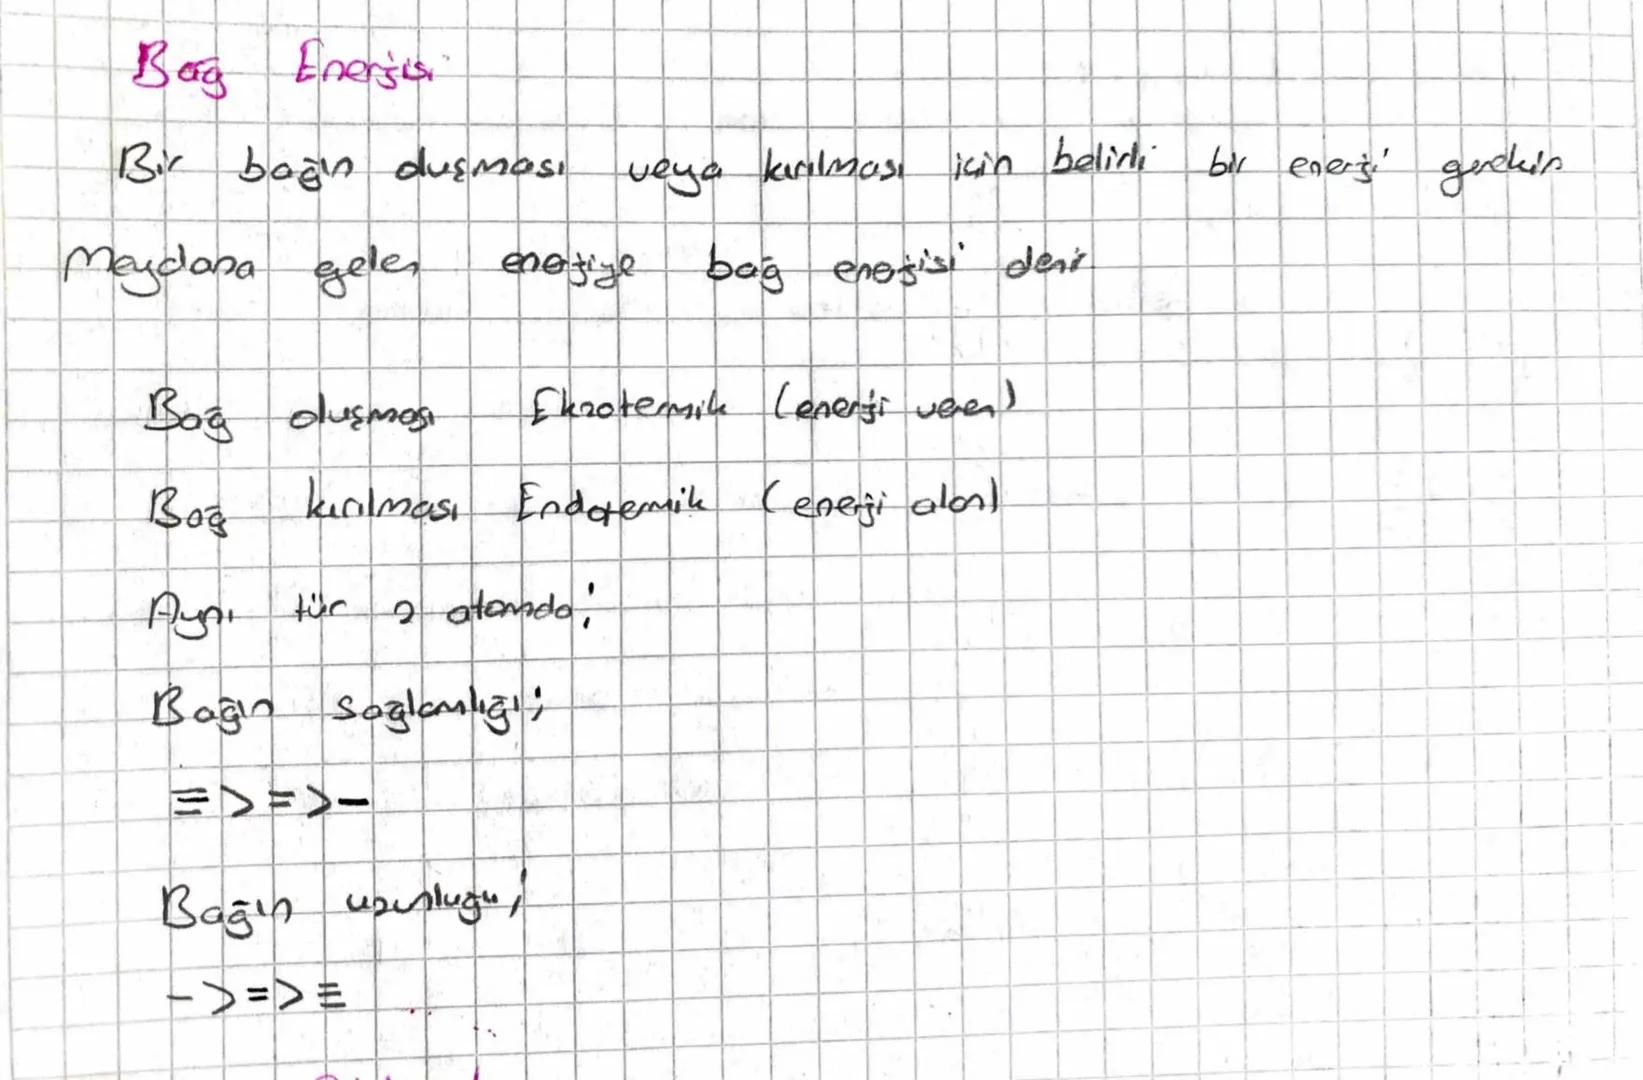 Bağ Enerjisi
Bir bağın oluşması veya kırılması için belirli bir enerji gerekir
Meydana gelen enerjiye bağ enerjisi denir.
Bağ oluşması Ekzotermik (enerji veren)
Bağ kırılması Endotermik (enerji alan)
Aynı tür 2 atomda;
Bağın sağlamlığı;
≡ > = > -
Bağın uzunluğu;
- > = > ≡